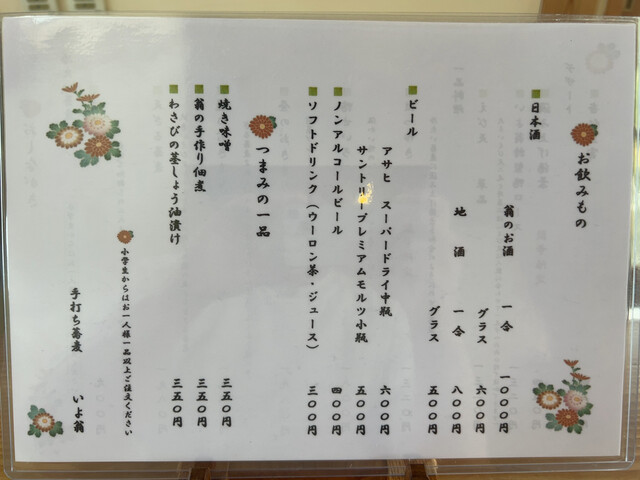 お飲みもの
■日本酒
翁のお酒 一合 一〇〇〇円
グラス 六〇〇円
地酒 一合 八〇〇円
グラス 五〇〇円
■ビール
アサヒ スーパードライ中瓶 六〇〇円
サントリープレミアムモルツ小瓶 五〇〇円
■ノンアルコールビール 四〇〇円
■ソフトドリンク（ウーロン茶・ジュース） 三〇〇円
つまみの一品
■焼き味噌 三五〇円
■翁の手作り佃煮 三五〇円
■わさびの茎しょう油漬け 三五〇円
小学生からはお一人様一品以上ご注文ください
手打ち蕎麦 いよ翁